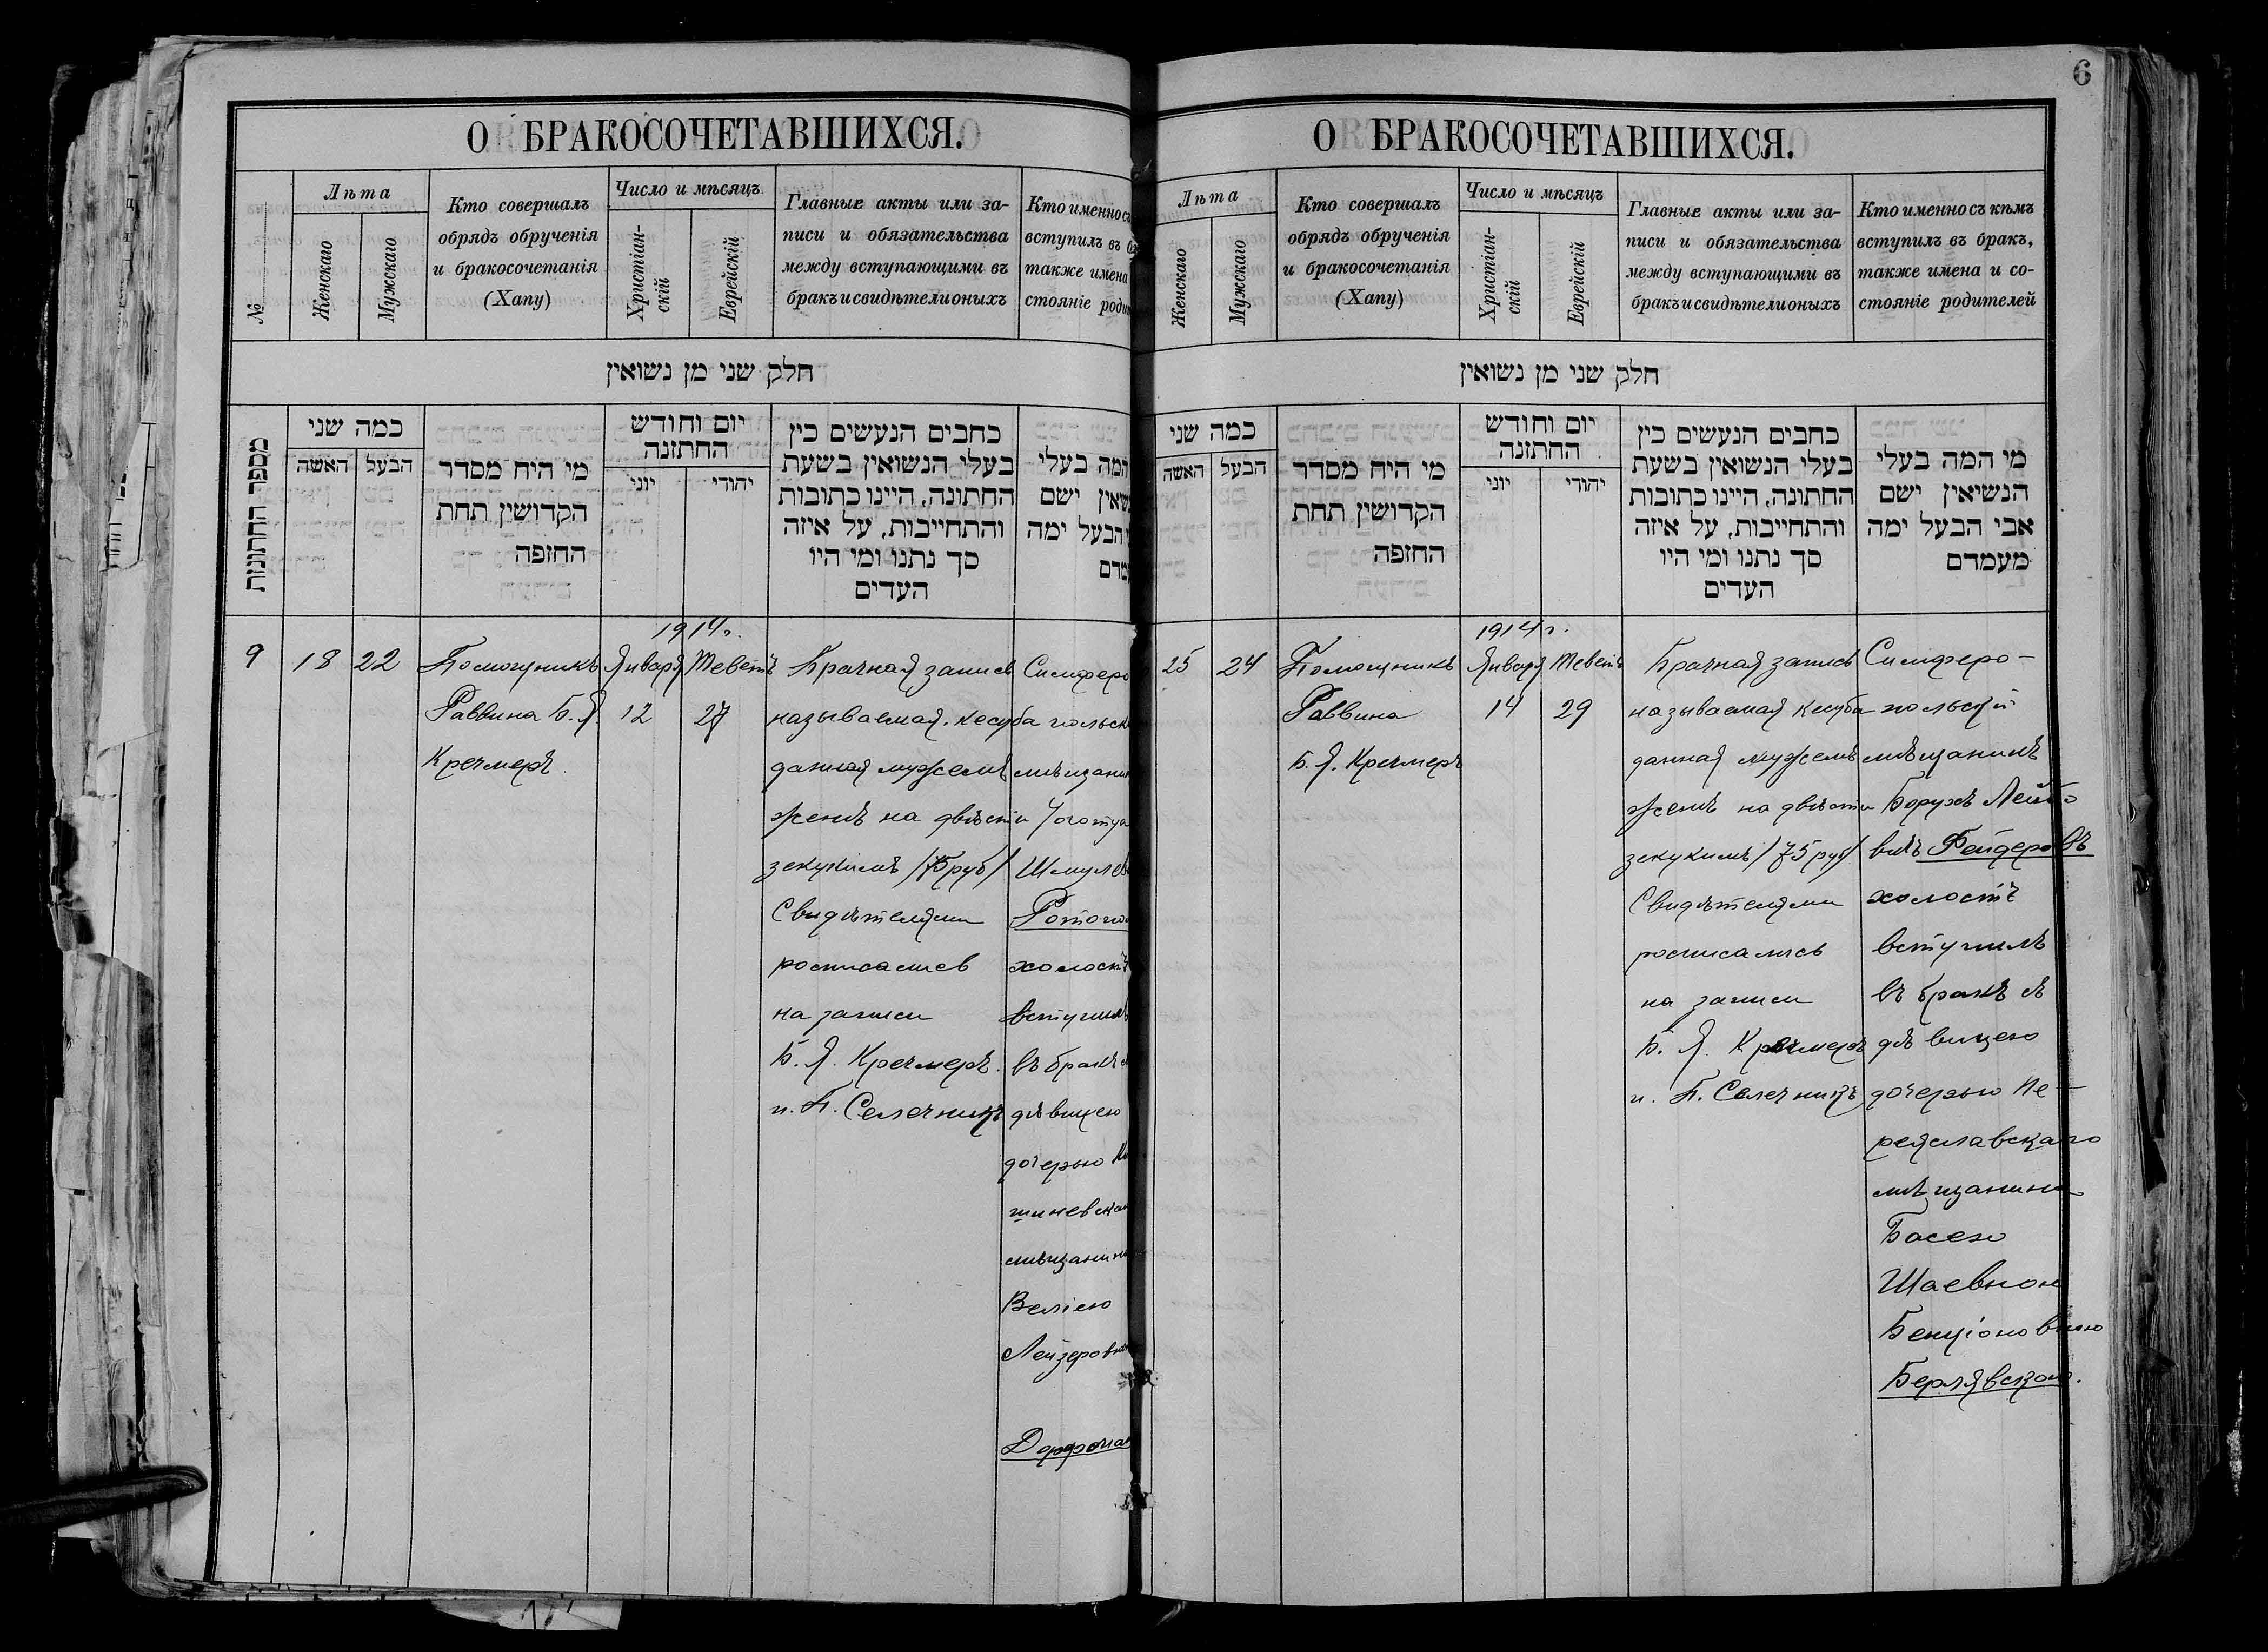 6
О БРАКОСОЧЕТАВШИХСЯ.
№
Лѣта
Женскаго
Мужскаго
Кто совершалъ
обрядъ обрученія
и бракосочетанія
(Хапу)
Число и мѣсяцъ
Христіан-
скій
Еврейскій
Главные акты или за-
писи и обязательства
между вступающими въ
бракъ и свидѣтели оныхъ
Кто именно съ
вступилъ въ
также имена
стояніе
חלק שני מן נשואין
מספר החתונות
כמה שני
האשה
הבעל
מי היח מסדר
הקדושין תחת
החזפה
יום וחודש
החתזנה
יוני
יהודי
כחבים הנעשים כין
בעלי הנשואין בשעת
החתונה, היינו כתובות
והתחייבות, על איזה
סך נתנו ומי היו
העדים
המה בעלי
ישם
הבעל ימה
9
18
22
Помощникъ
Раввина Б. Я.
Кречмеръ
1914 г.
Января
12
Теветъ
27
Брачная запись
называемая кесуба
данная мужемъ
женѣ на двѣсти
зекукимъ /75 руб/
Свидѣтелями
росписались
на записи
Б. Я. Кречмеръ
и П. Селечникъ
Симферо
польск
мѣщани
Шмулев
холостъ
вступилъ
въ бракъ
дѣвицею
дочерью Ки
шиневска
мѣщанин
Веліею
Лейзеровн
О БРАКОСОЧЕТАВШИХСЯ.
Лѣта
Женскаго
Мужскаго
Кто совершалъ
обрядъ обрученія
и бракосочетанія
(Хапу)
Число и мѣсяцъ
Христіан-
скій
Еврейскій
Главные акты или за-
писи и обязательства
между вступающими въ
бракъ и свидѣтели оныхъ
Кто именно съ кѣмъ
вступилъ въ бракъ,
также имена и со-
стояніе родителей
חלק שני מן נשואין
כמה שני
האשה
הבעל
מי היח מסדר
הקדושין תחת
החזפה
יום וחודש
החתזנה
יוני
יהודי
כחבים הנעשים כין
בעלי הנשואין בשעת
החתונה, היינו כתובות
והתחייבות, על איזה
סך נתנו ומי היו
העדים
מי המה בעלי
הנשיאין ישם
אבי הבעל ימה
מעמדם
25
24
Помощникъ
Раввина
Б. Я. Кречмеръ
1914 г.
Января
14
Теветъ
29
Брачная запись
называемая кесуба
данная мужемъ
женѣ на двѣсти
зекукимъ /75 руб/
Свидѣтелями
росписались
на записи
Б. Я. Кречмеръ
и П. Селечникъ
Симферо-
польскій
мѣщанинъ
Борухъ Лейбо
вичъ Фейдеровъ
холостъ
вступилъ
въ бракъ съ
дѣвицею
дочерью Пе-
реяславскаго
мѣщанина
Басею
Шаевною
Бенціоновною
Берлявскою.